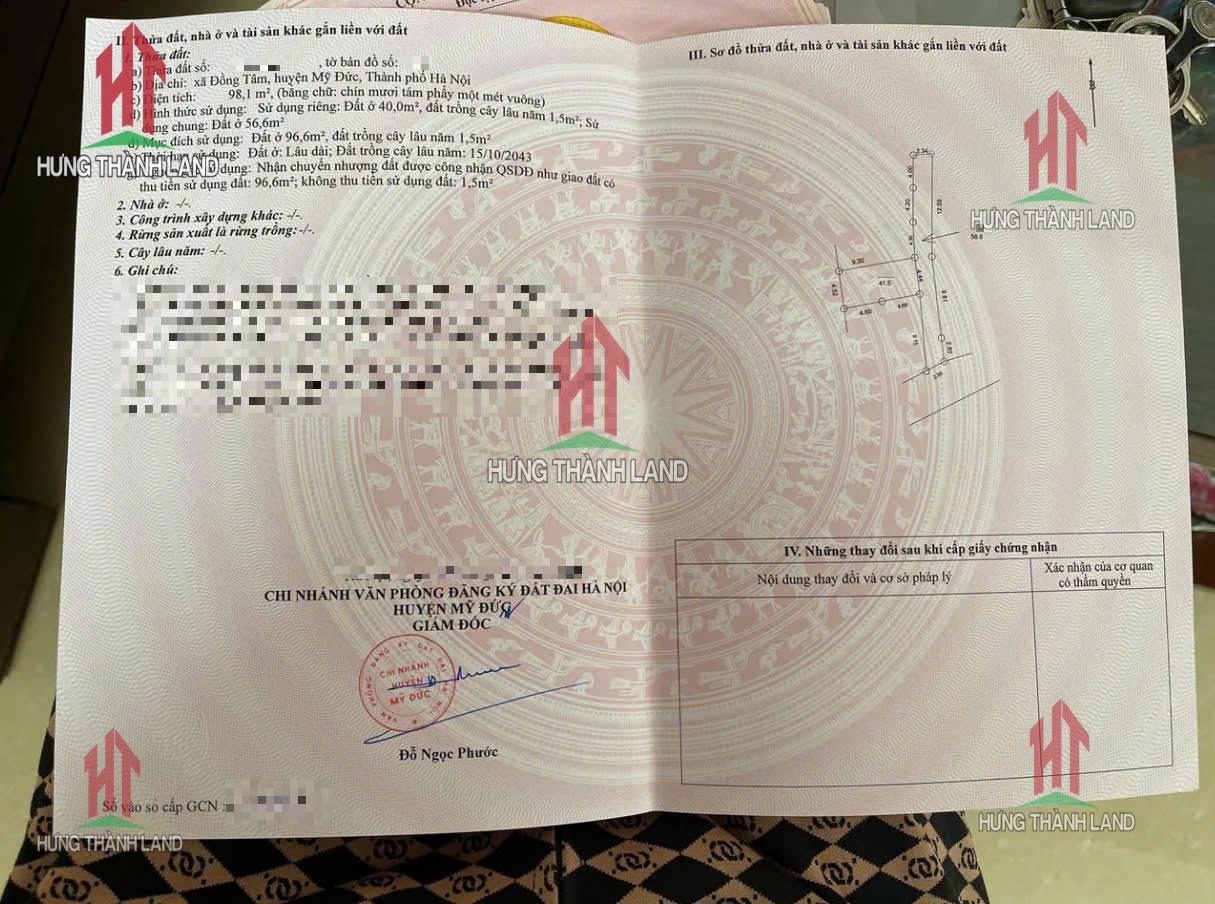 II. Thửa đất, nhà ở và tài sản khác gắn liền với đất
1. Thửa đất:
a) Thửa đất số: , tờ bản đồ số:
b) Địa chỉ: xã Đồng Tâm, huyện Mỹ Đức, Thành phố Hà Nội
c) Diện tích: 98,1 m², (bằng chữ: chín mươi tám phẩy một mét vuông)
d) Hình thức sử dụng: Sử dụng riêng: Đất ở 40,0m², đất trồng cây lâu năm 1,5m²; Sử
dụng chung: Đất ở 56,6m²
đ) Mục đích sử dụng: Đất ở 96,6m², đất trồng cây lâu năm 1,5m²
sử dụng: Đất ở: Lâu dài; Đất trồng cây lâu năm: 15/10/2043
dụng: Nhận chuyển nhượng đất được công nhận QSDĐ như giao đất có
thu tiền sử dụng đất: 96,6m²; không thu tiền sử dụng đất: 1,5m²
2. Nhà ở: -/-.
3. Công trình xây dựng khác: -/-.
4. Rừng sản xuất là rừng trồng: -/-.
5. Cây lâu năm: -/-.
6. Ghi chú:
CHI NHÁNH VĂN PHÒNG ĐĂNG KÝ ĐẤT ĐAI HÀ NỘI
HUYỆN MỸ ĐỨC
GIÁM ĐỐC
VĂN PHÒNG ĐĂNG KÝ ĐẤT ĐAI HÀ NỘI
CHI NHÁNH
HUYỆN
MỸ ĐỨC
Đỗ Ngọc Phước
Số vào sổ cấp GCN :
III. Sơ đồ thửa đất, nhà ở và tài sản khác gắn liền với đất
B
2.34
4.00
4.20
12.59
56.6
9.30
4.52
41.5
4.44
4.60
4.69
9.81
9.15
2.80
IV. Những thay đổi sau khi cấp giấy chứng nhận
Nội dung thay đổi và cơ sở pháp lý
Xác nhận của cơ quan
có thẩm quyền
HƯNG THÀNH LAND
HƯNG THÀNH LAND
HƯNG THÀNH LAND
HƯNG THÀNH LAND
HƯNG THÀNH LAND